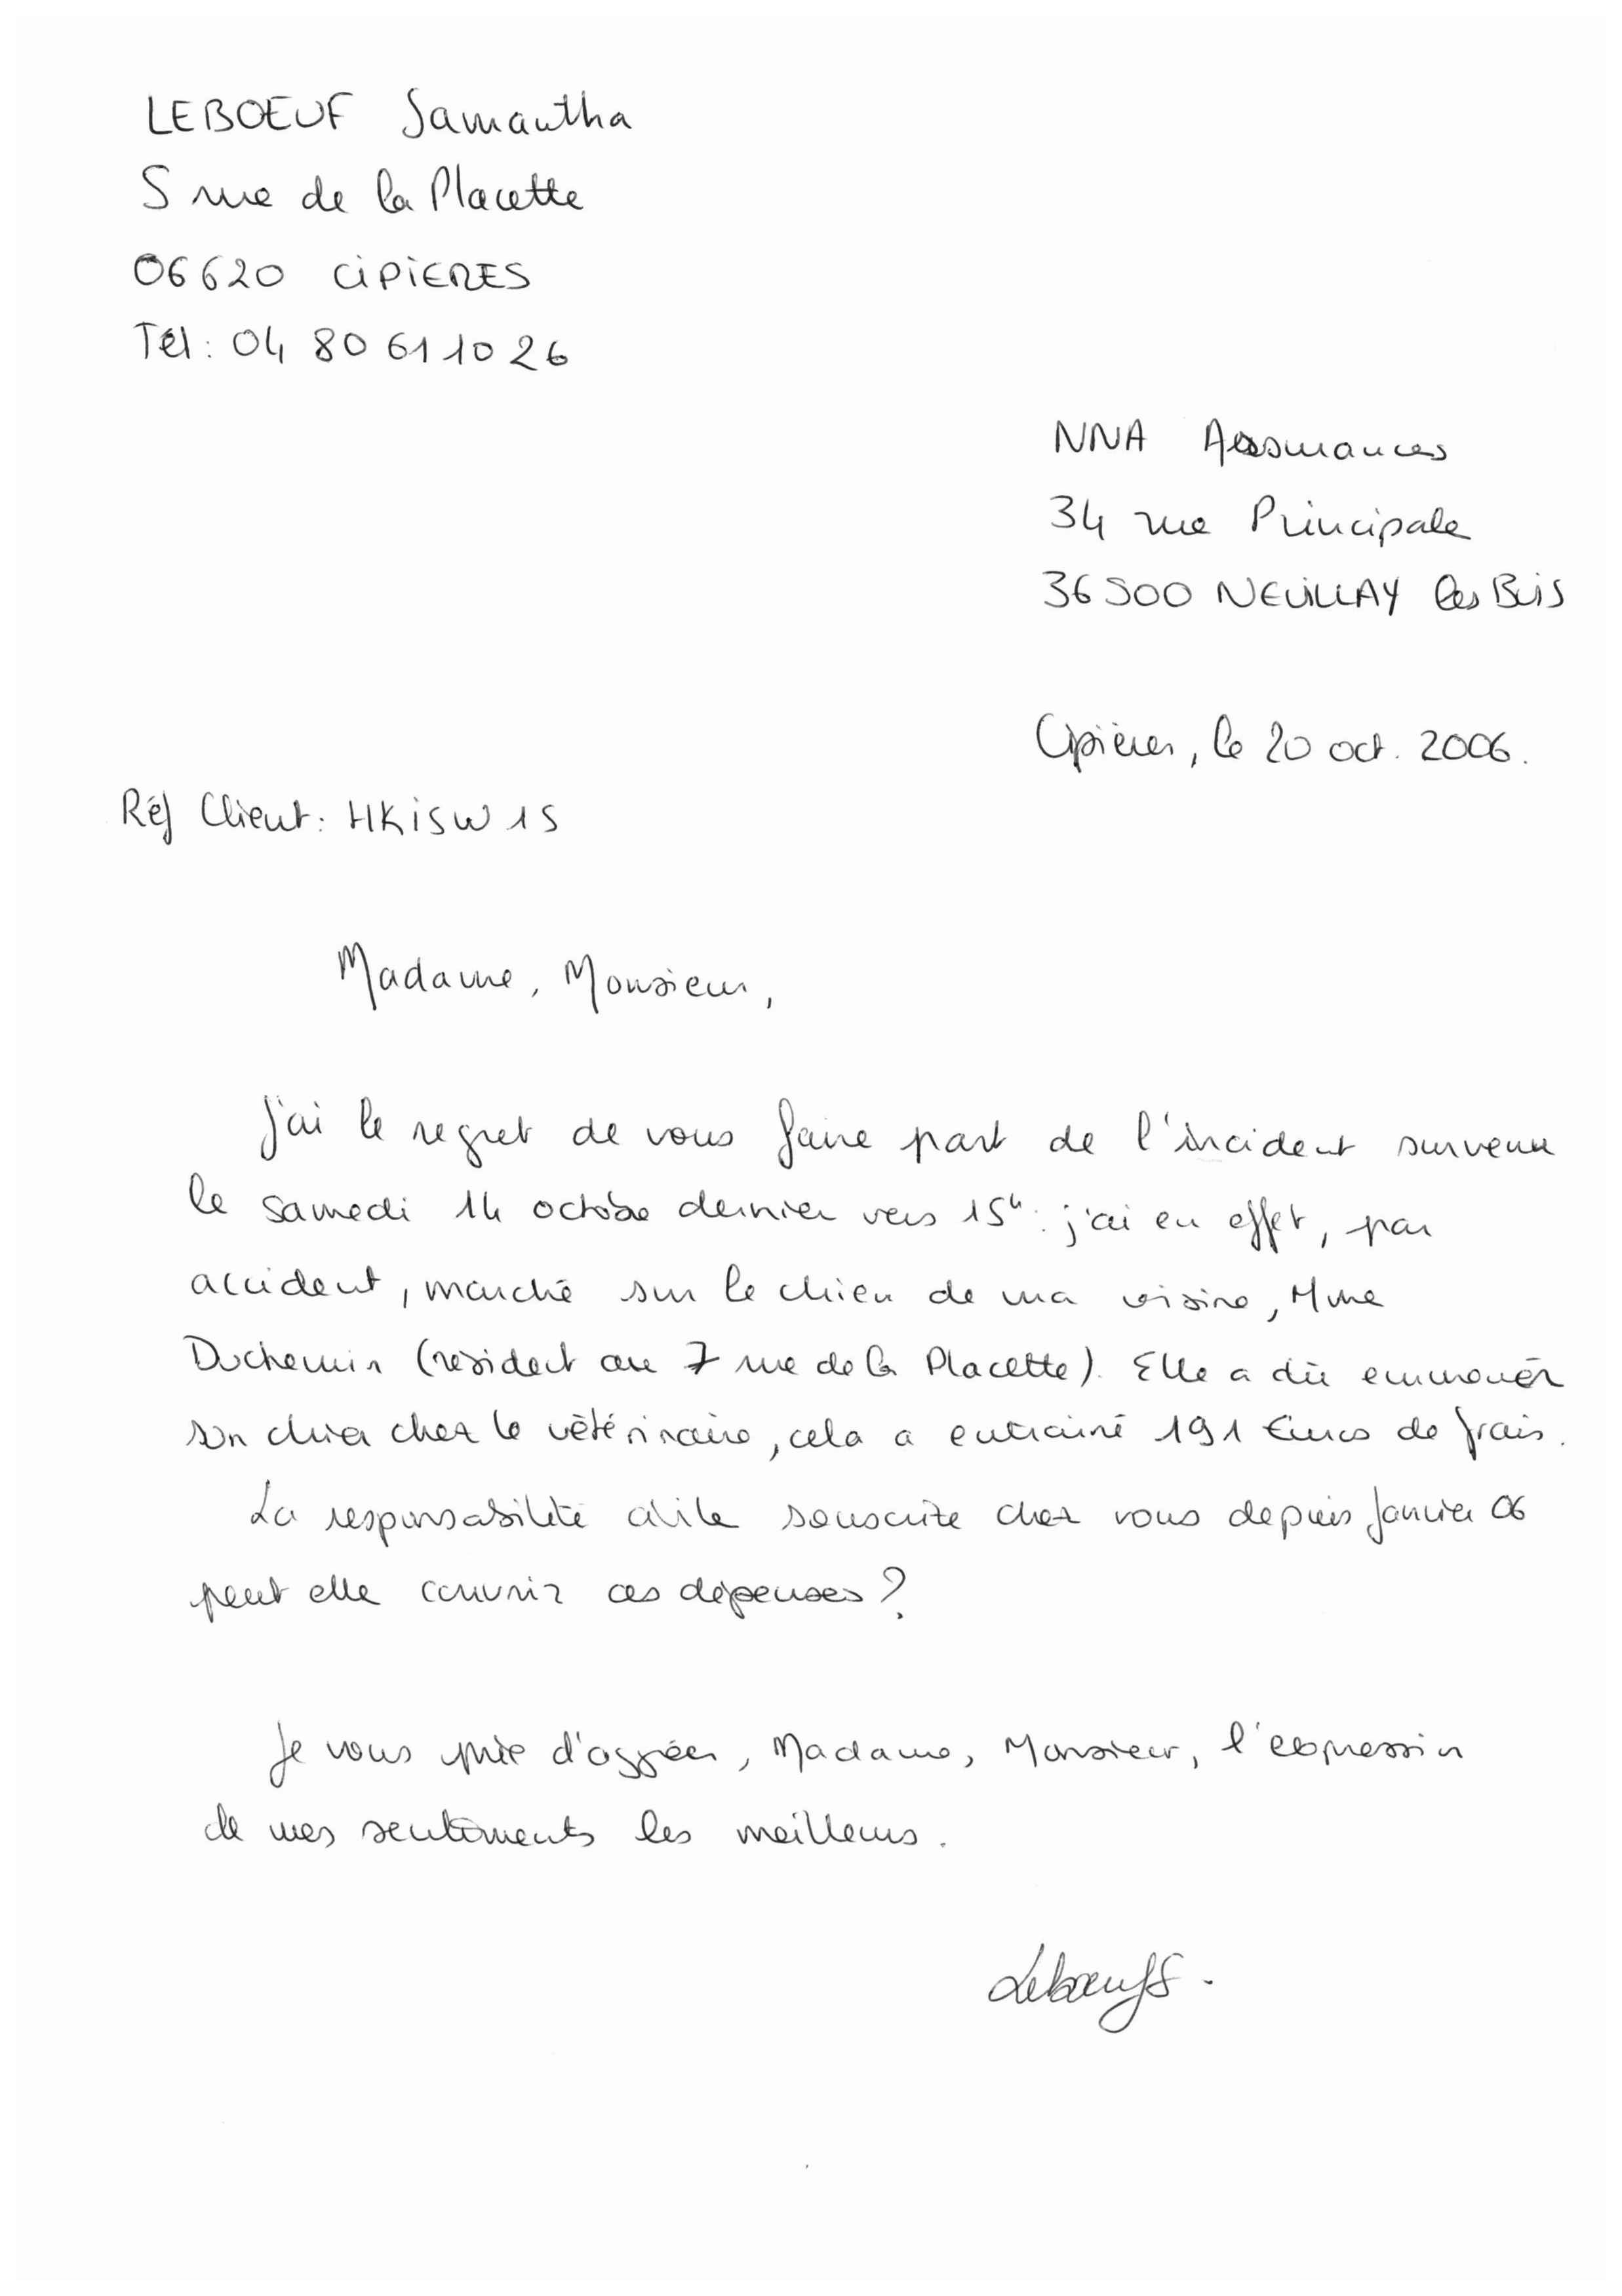 LEBOEUF Samantha
5 rue de la Placette
06620 CIPIERES
Tél : 04 80 61 10 26
NNA Assurances
34 rue Principale
36500 NEUILLAY les Bois
Cipières, le 20 oct. 2006.
Réf Client : HKISW15
Madame, Monsieur,
J'ai le regret de vous faire part de l'incident survenu
le samedi 14 octobre dernier vers 15h : j'ai en effet, par
accident, marché sur le chien de ma voisine, Mme
Duchemin (résident au 7 rue de la Placette). Elle a dû emmener
son chien chez le vétérinaire, cela a entrainé 191 Euros de frais.
La responsabilité civile souscrite chez vous depuis Janvier 06
peut elle couvrir ces dépenses ?
Je vous prie d'aggréer, Madame, Monsieur, l'expression
de mes sentiments les meilleurs.
LeboeufS.